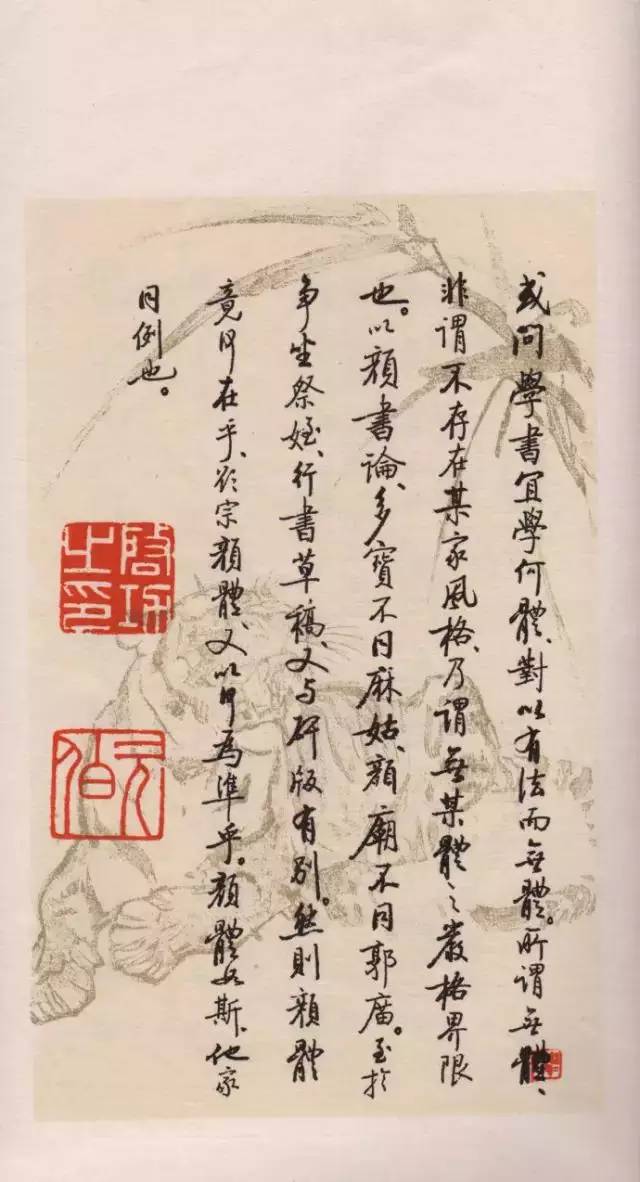 或问學書宜學何體、對以有法而無體。所谓無體、
非谓不存在某家風格、乃谓無某體之嚴格界限
也。以顔書論、多寶不同麻姑、顔廟不同郭廟。至於
争坐祭姪、行書草稿、又与碑版有别。然則顔體
竟何在乎、欲宗顔體、又以何為準乎。顔體如斯、他家
同例也。
啓功之印
元伯